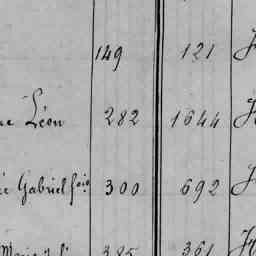 149 121
Léon 282 1644
Gabriel fois 300 692
385 361